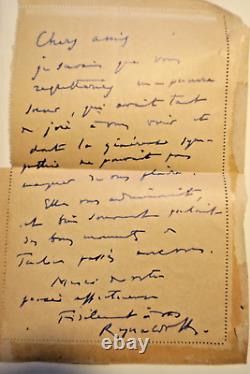 Chers amis
je savais que vous
regretteriez ma pauvre
sœur, qui avait tant
de joie à vous voir et
dont la généreuse sym-
pathie ne pouvait pas
manquer de vous plaire.
Elle vous admirait,
et bien souvent parlait
des bons moments à
passés avec vous.
Merci de votre
pensée affectueuse
Fidèlement à vous